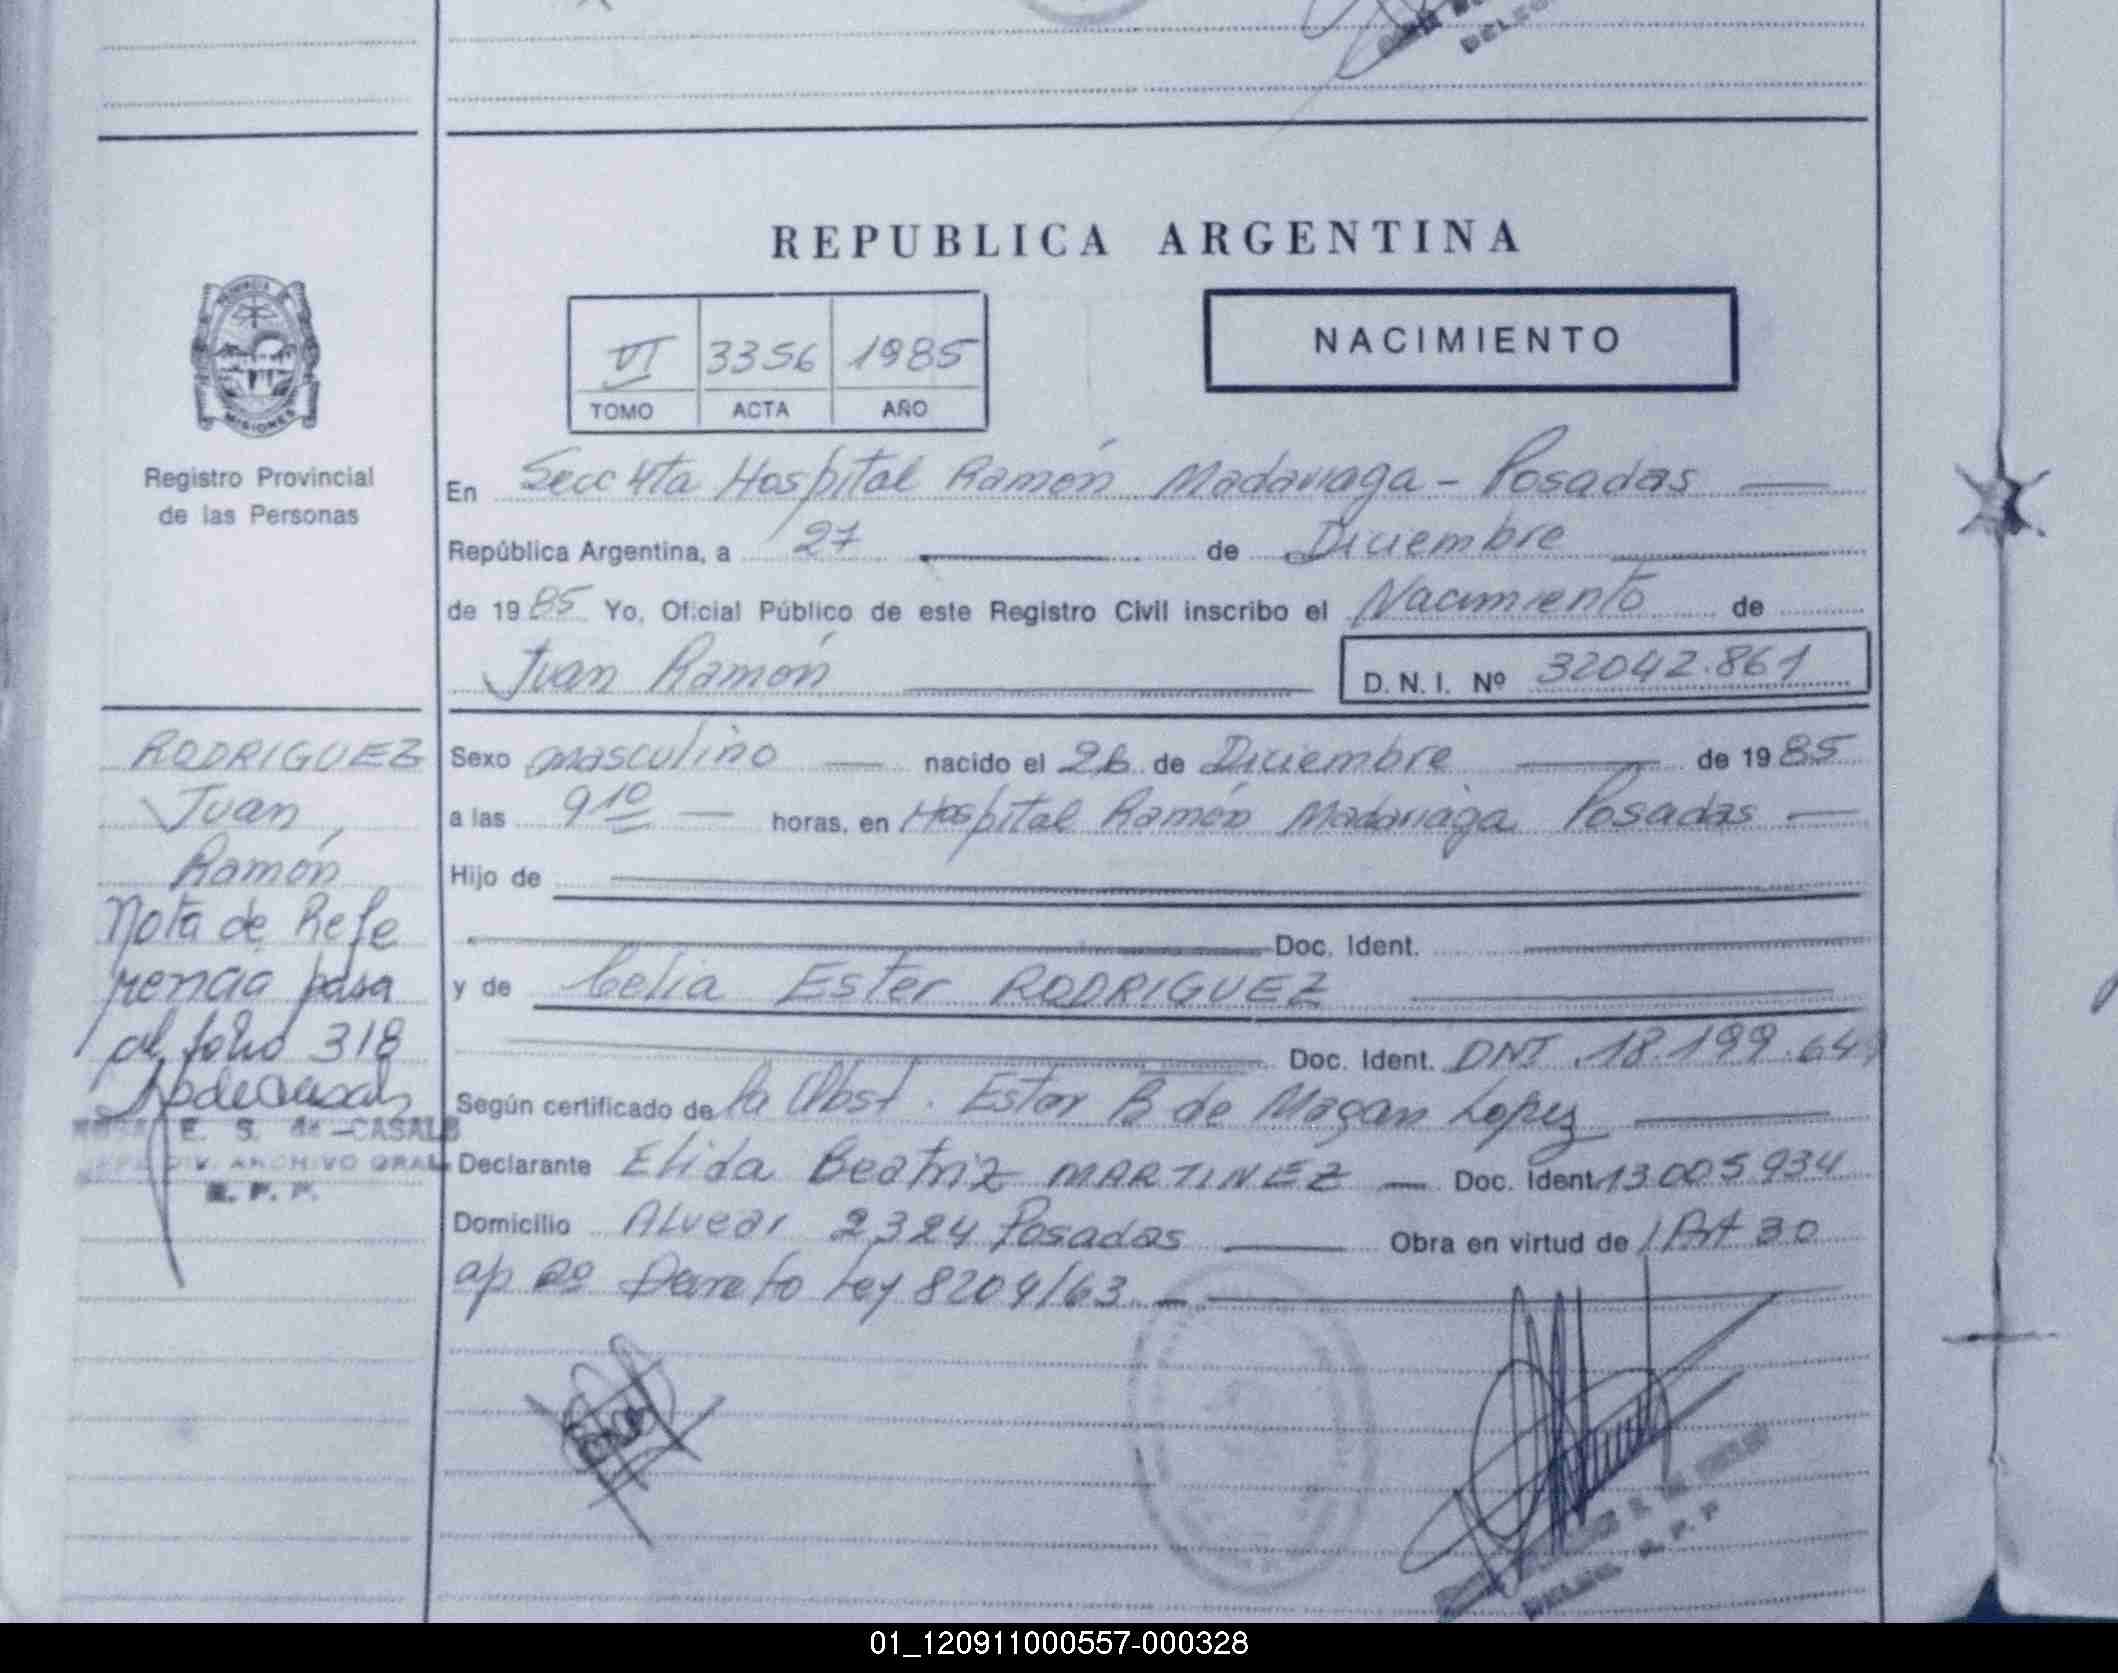 REPUBLICA ARGENTINA
PROVINCIA DE
MISIONES
Registro Provincial
de las Personas
VI 3356 1985
TOMO ACTA AÑO
NACIMIENTO
En Secc 4ta Hospital Ramón Madariaga - Posadas
República Argentina, a 27 de Diciembre
de 1985 Yo, Oficial Público de este Registro Civil inscribo el Nacimiento de
Juan Ramón D. N. I. Nº 32042.861
RODRIGUEZ
Juan
Ramón
Nota de Refe
rencia pasa
al folio 318
E. S. de CASALS
DIV. ARCHIVO GRAL
R. P. P.
Sexo masculino nacido el 26 de Diciembre de 1985
a las 9 10 horas, en Hospital Ramón Madariaga Posadas
Hijo de
Doc. Ident.
y de Celia Ester RODRIGUEZ
Doc. Ident. DNI 18.199.649
Según certificado de la Obst. Ester B de Magan Lopez
Declarante Elida Beatriz MARTINEZ Doc. Ident 13005934
Domicilio Alvear 2324 Posadas Obra en virtud de / Art 30
ap 2º Decreto Ley 8204/63
R. P. P
01_120911000557-000328